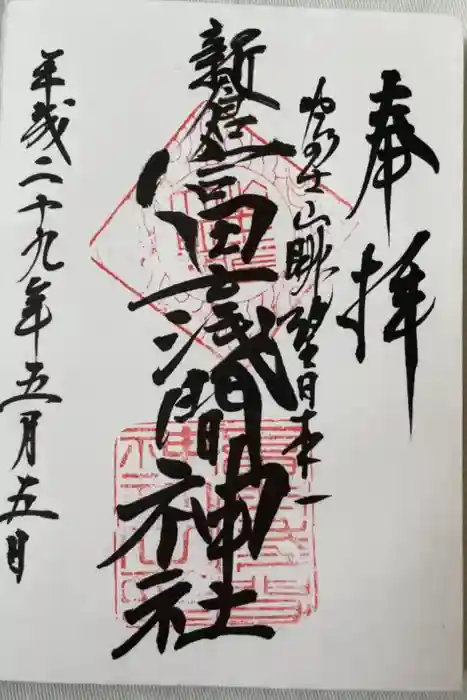 奉拝
富士山眺望日本一
新倉冨士浅間神社
平成二十九年五月五日